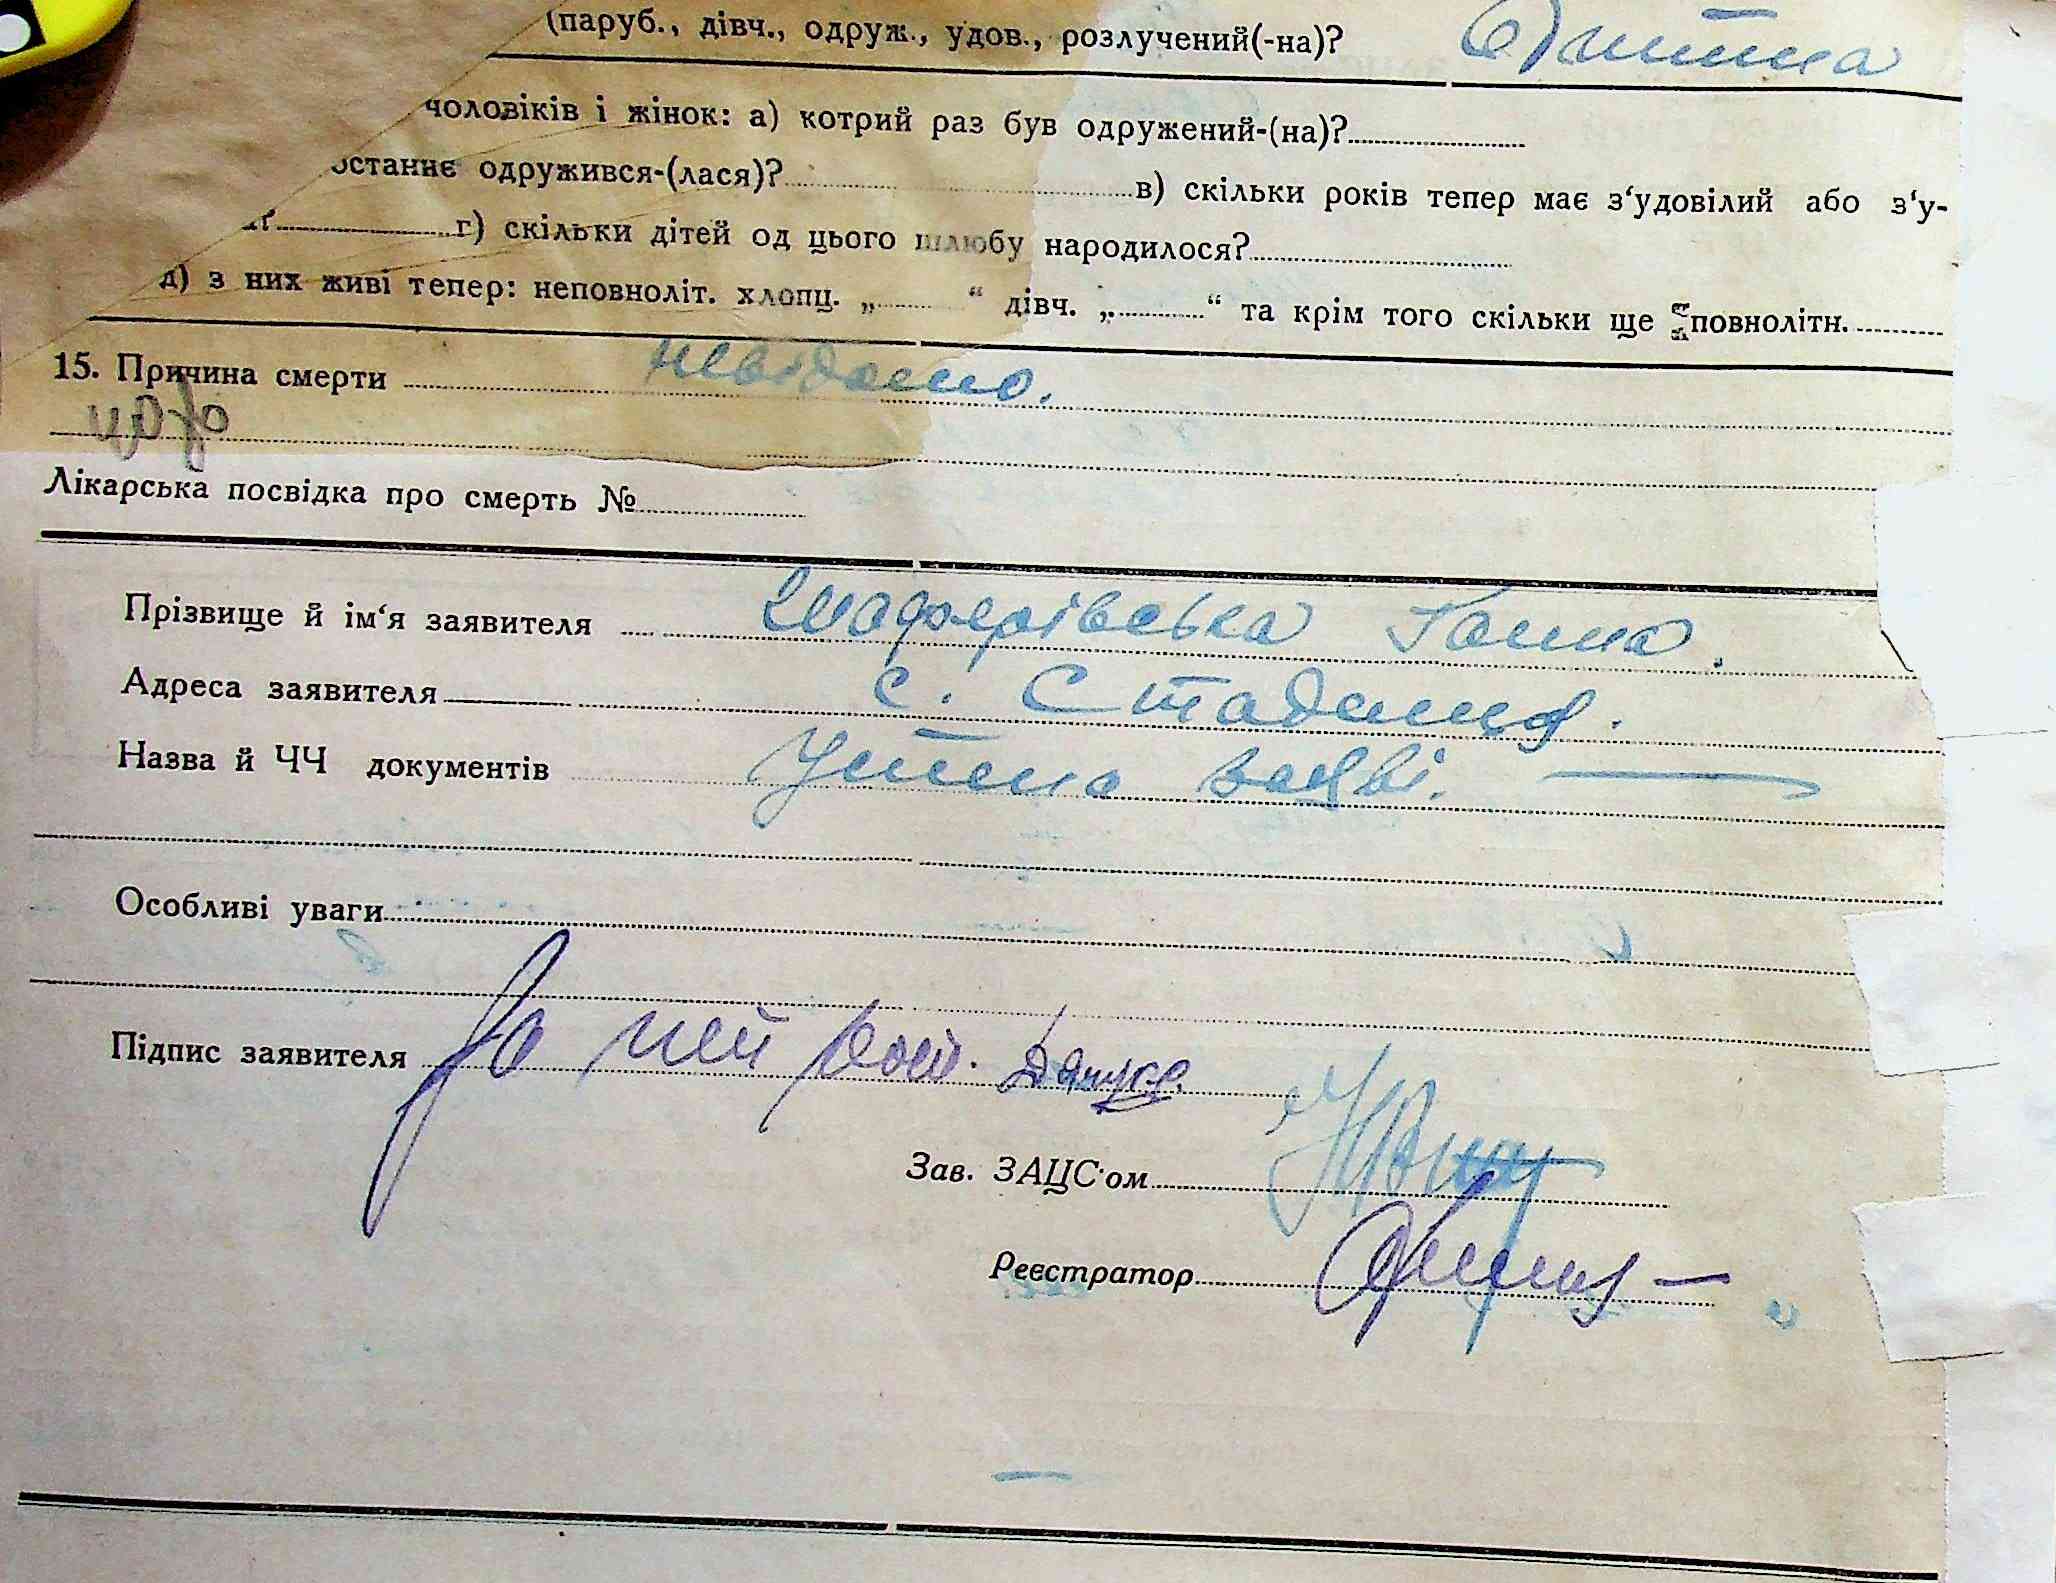 (паруб., дівч., одруж., удов., розлучений(-на)? Дитина
чоловіків і жінок: а) котрий раз був одружений-(на)?
останнє одружився-(лася)? в) скільки років тепер має з‘удовілий або з‘у-
г) скільки дітей од цього шлюбу народилося?
д) з них живі тепер: неповноліт. хлопц. „ “ дівч. „ “ та крім того скільки ще повнолітн.
15. Причина смерти невідомо.
Лікарська посвідка про смерть №
Прізвище й ім‘я заявителя Ганна.
Адреса заявителя с. Стадниця.
Назва й ЧЧ документів Устна заяві.
Особливі уваги
Підпис заявителя За неї
Зав. ЗАЦС‘ом
Реєстратор